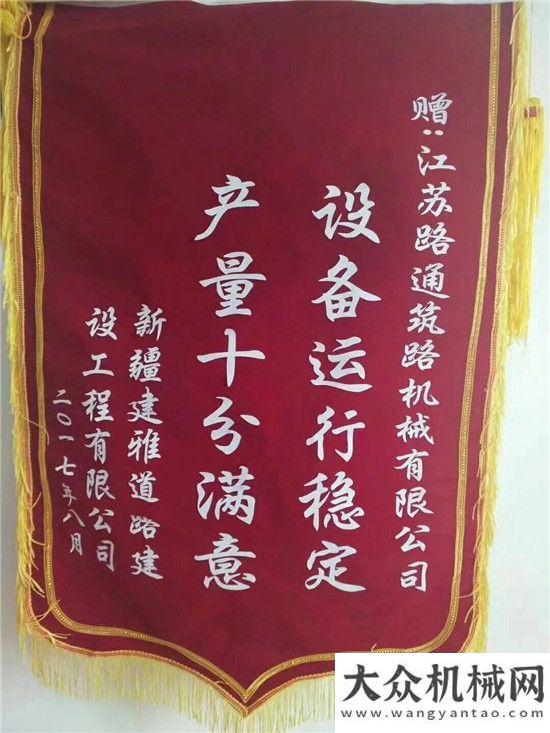 赠:江苏路通筑路机械有限公司
设备运行稳定
产量十分满意
新疆建雅道路建
设工程有限公司
二〇一七年八月
大众机械网
www.wangyantao.com